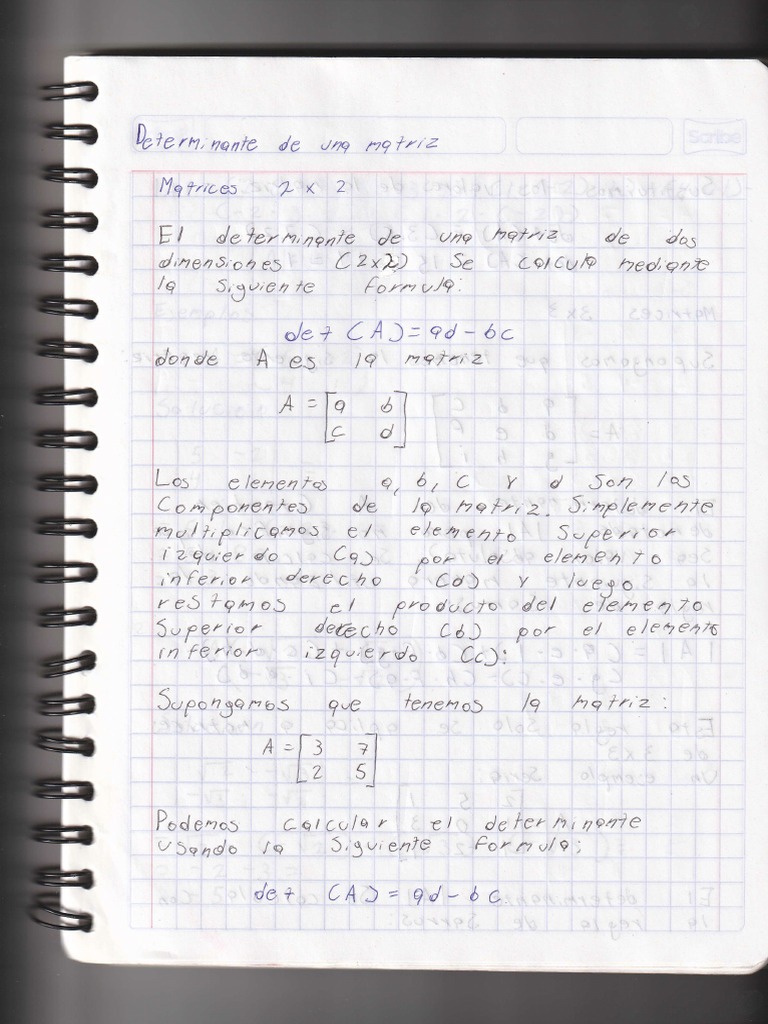 Scribe
Determinante de una matriz
Matrices 2 x 2
El determinante de una matriz de dos
dimensiones (2x2) se calcula mediante
la siguiente formula:
det (A) = ad - bc
donde A es la matriz
A = [a b
c d]
Los elementos a, b, c y d son los
componentes de la matriz. Simplemente
multiplicamos el elemento superior
izquierdo (a) por el elemento
inferior derecho (d) y luego
restamos el producto del elemento
superior derecho (b) por el elemento
inferior izquierdo (c):
Supongamos que tenemos la matriz:
A = [3 7
2 5]
Podemos calcular el determinante
usando la siguiente formula;
det (A) = ad - bc.